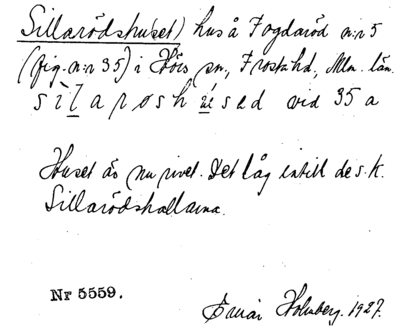 Sillarödshuset) hus å Fogdaröd n:r 5
(fig. n:r 35) i Höörs sn, Frosta hd, Mlm. län.
sìlarøshúsed vid 35 a
Huset är nu rivet. Det låg intill de s.k.
Sillarödshallarna.
Nr 5559.
Einar Holmberg. 1927.